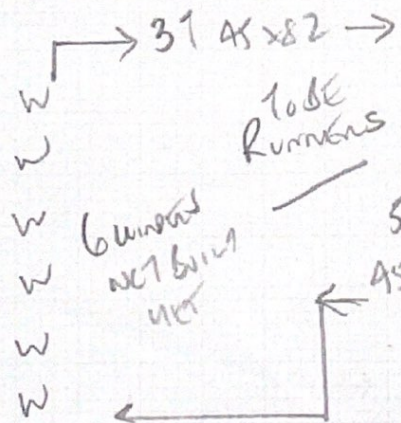 37 45 x 82
W
W
W
W
W
W
TO BE
RUNNERS
6 WINDERS
NOT BUILT
YET
5
45